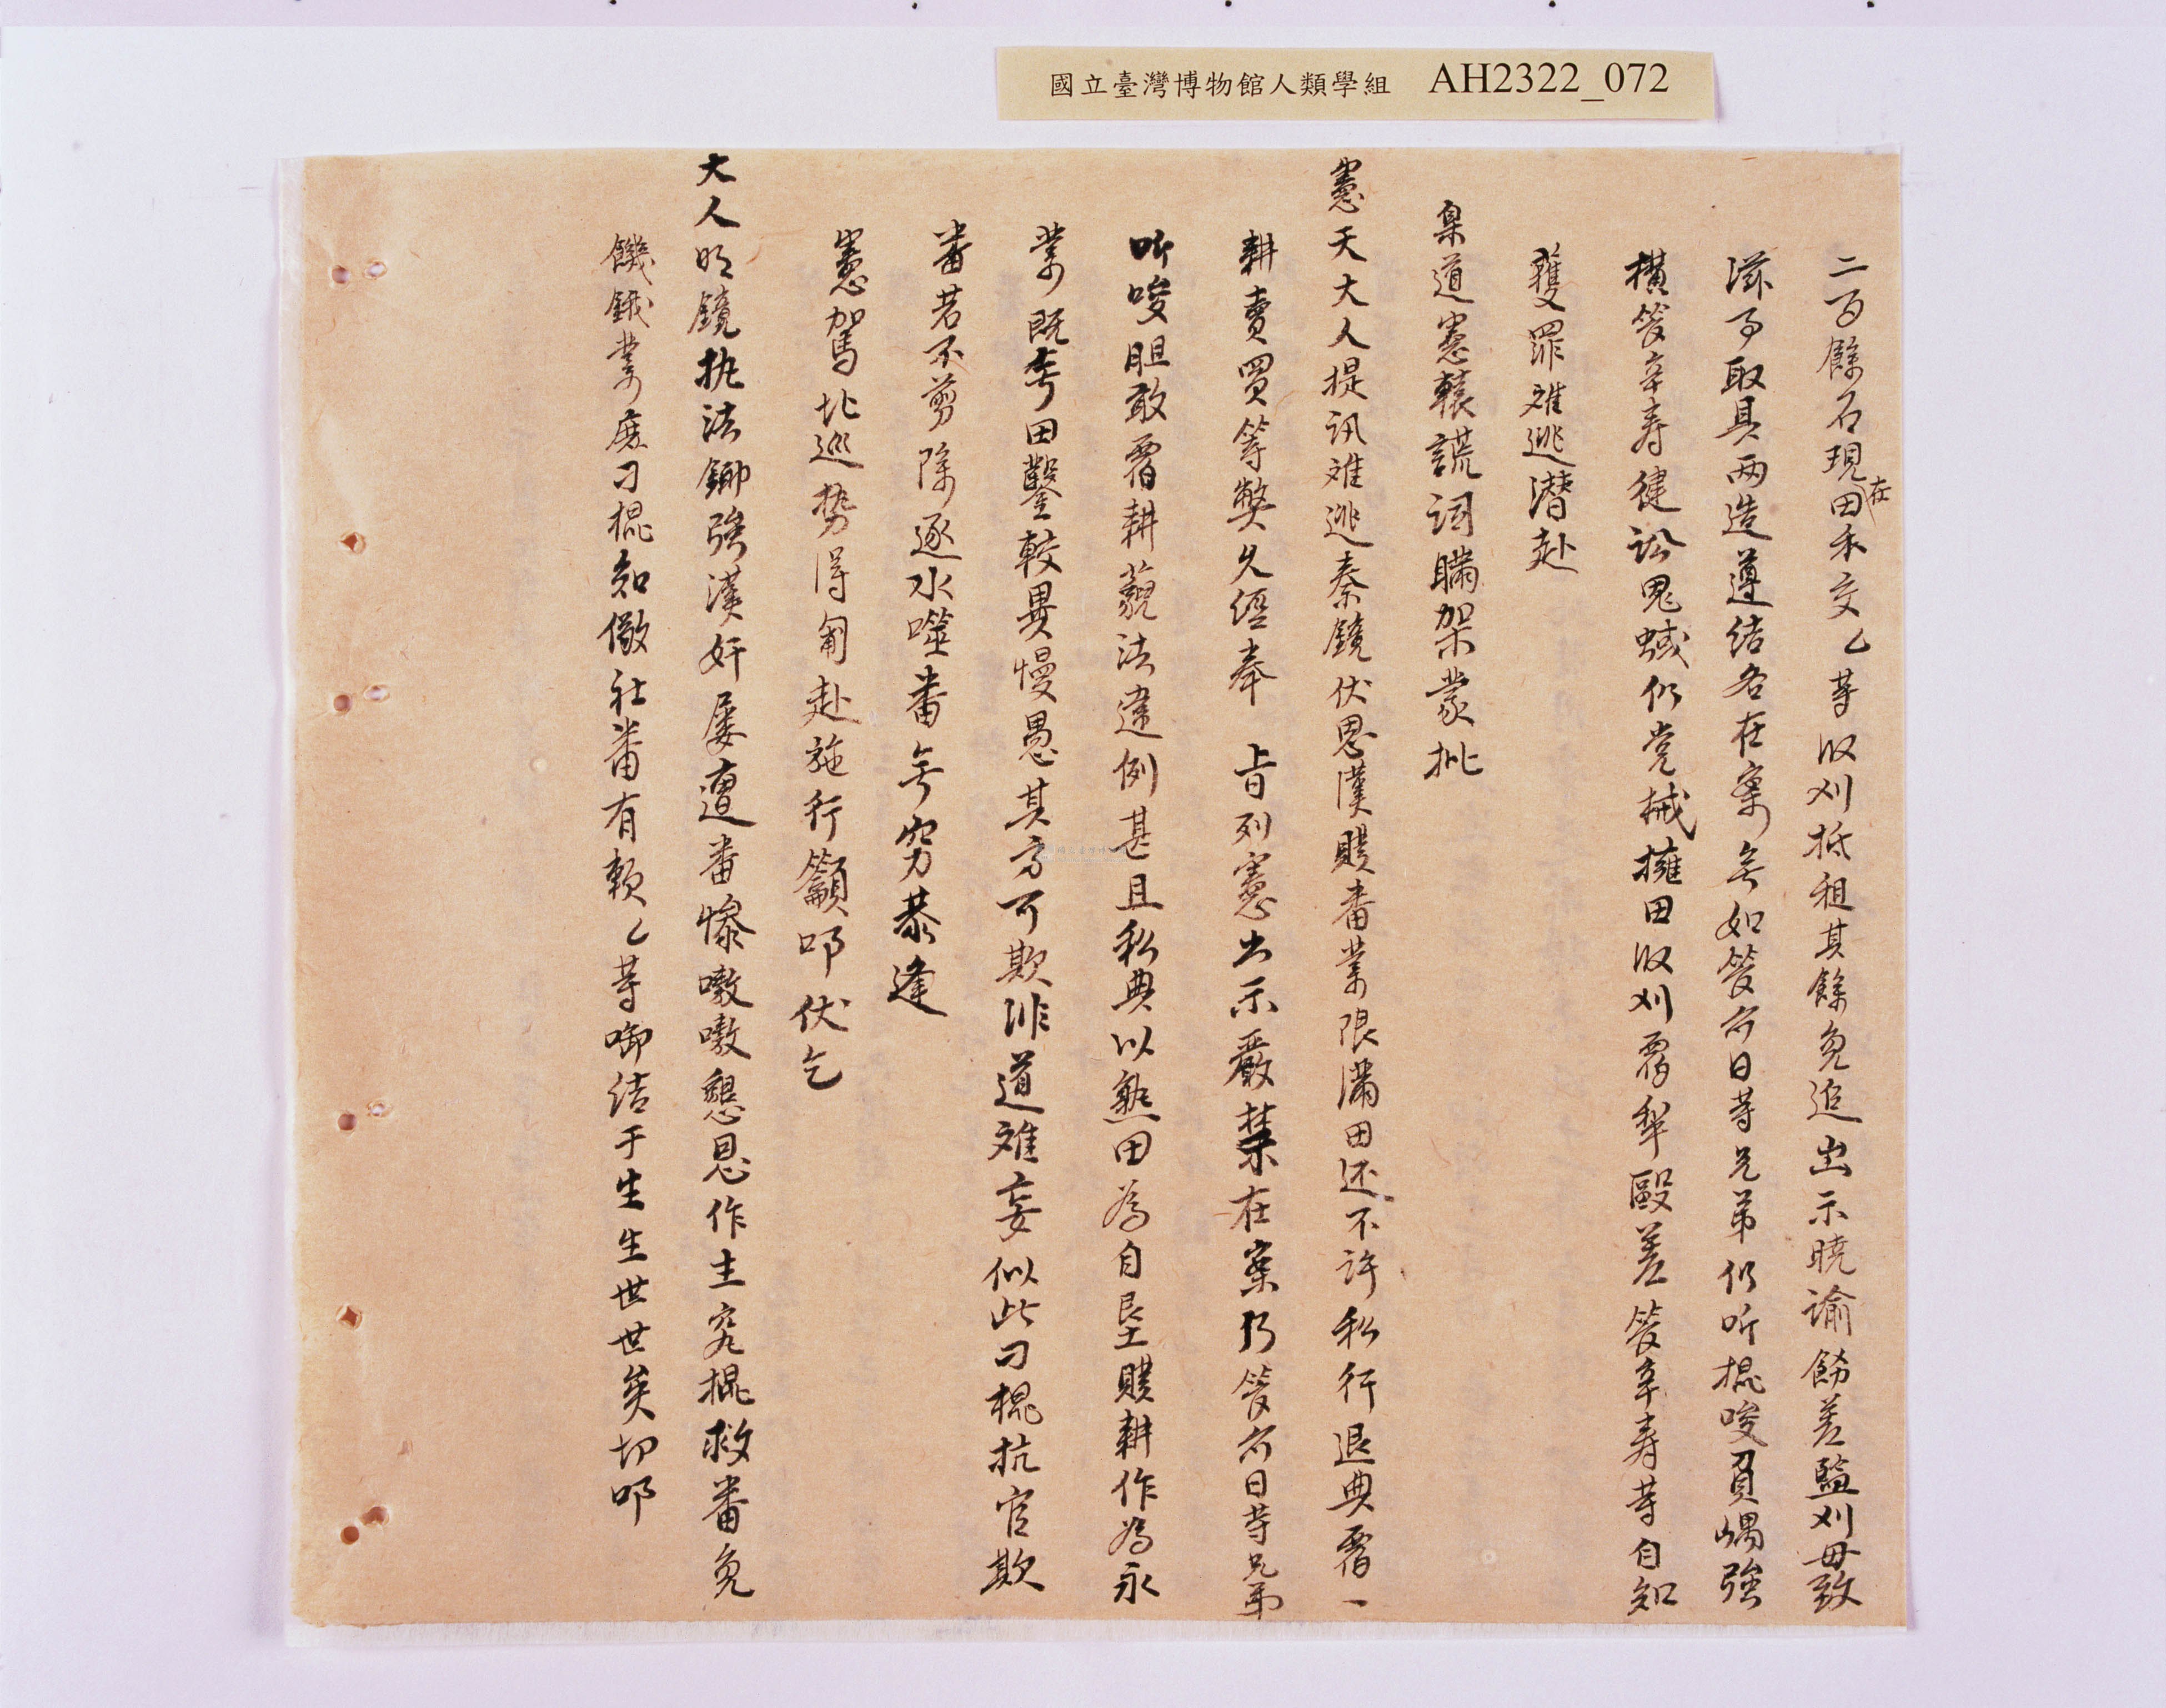 國立臺灣博物館人類學組 AH2322_072
二百餘石現在田禾交乙等收刈抵租其餘免追出示曉諭飭差監刈毋致
滋事取具两造遵结各在案無如管前日等兄弟仍听棍唆負嵎強
橫管辛寿健訟鬼蜮仍党械擁田收刈霸犁毆差管辛寿等自知
獲罪难逃潜赴
臬道憲轅謊词瞞架蒙批
憲天大人提讯难逃秦鏡伏思漢贌畨業限滿田还不許私行退典霸一
耕賣買等弊久经奉 旨列憲出示嚴禁在案乃管前日等兄弟
听唆胆敢霸耕藐法違例甚且私典以熟田為自垦贌耕作為永
業既夸田鑿較異慢愚其方可欺誹道难妄似此刁棍抗官欺
畨若不剪除逐水噬畨無窮恭逢
憲駕北巡势得匍赴施行籲叩伏乞
大人明鏡执法鋤強漢奸屡遭畨慘嗷嗷懇恳作主究棍救畨免
饑餓業庶刁棍知儆社畨有賴乙等啣结于生生世世矣切叩